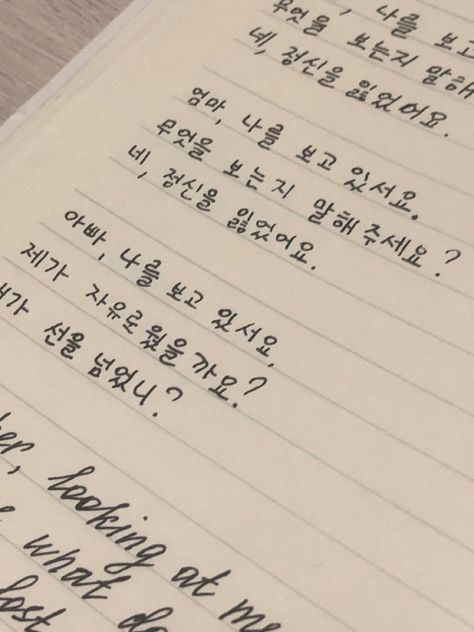 나를 보고
무엇을 보는지 말해
네, 정신을 잃었어요.
엄마, 나를 보고 있서요.
무엇을 보는지 말해주세요?
네, 정신을 잃었어요.
아빠, 나를 보고 있서요.
제가 자유로웠을 까요?
가 선을 넘었니?
looking at me
what do
lost